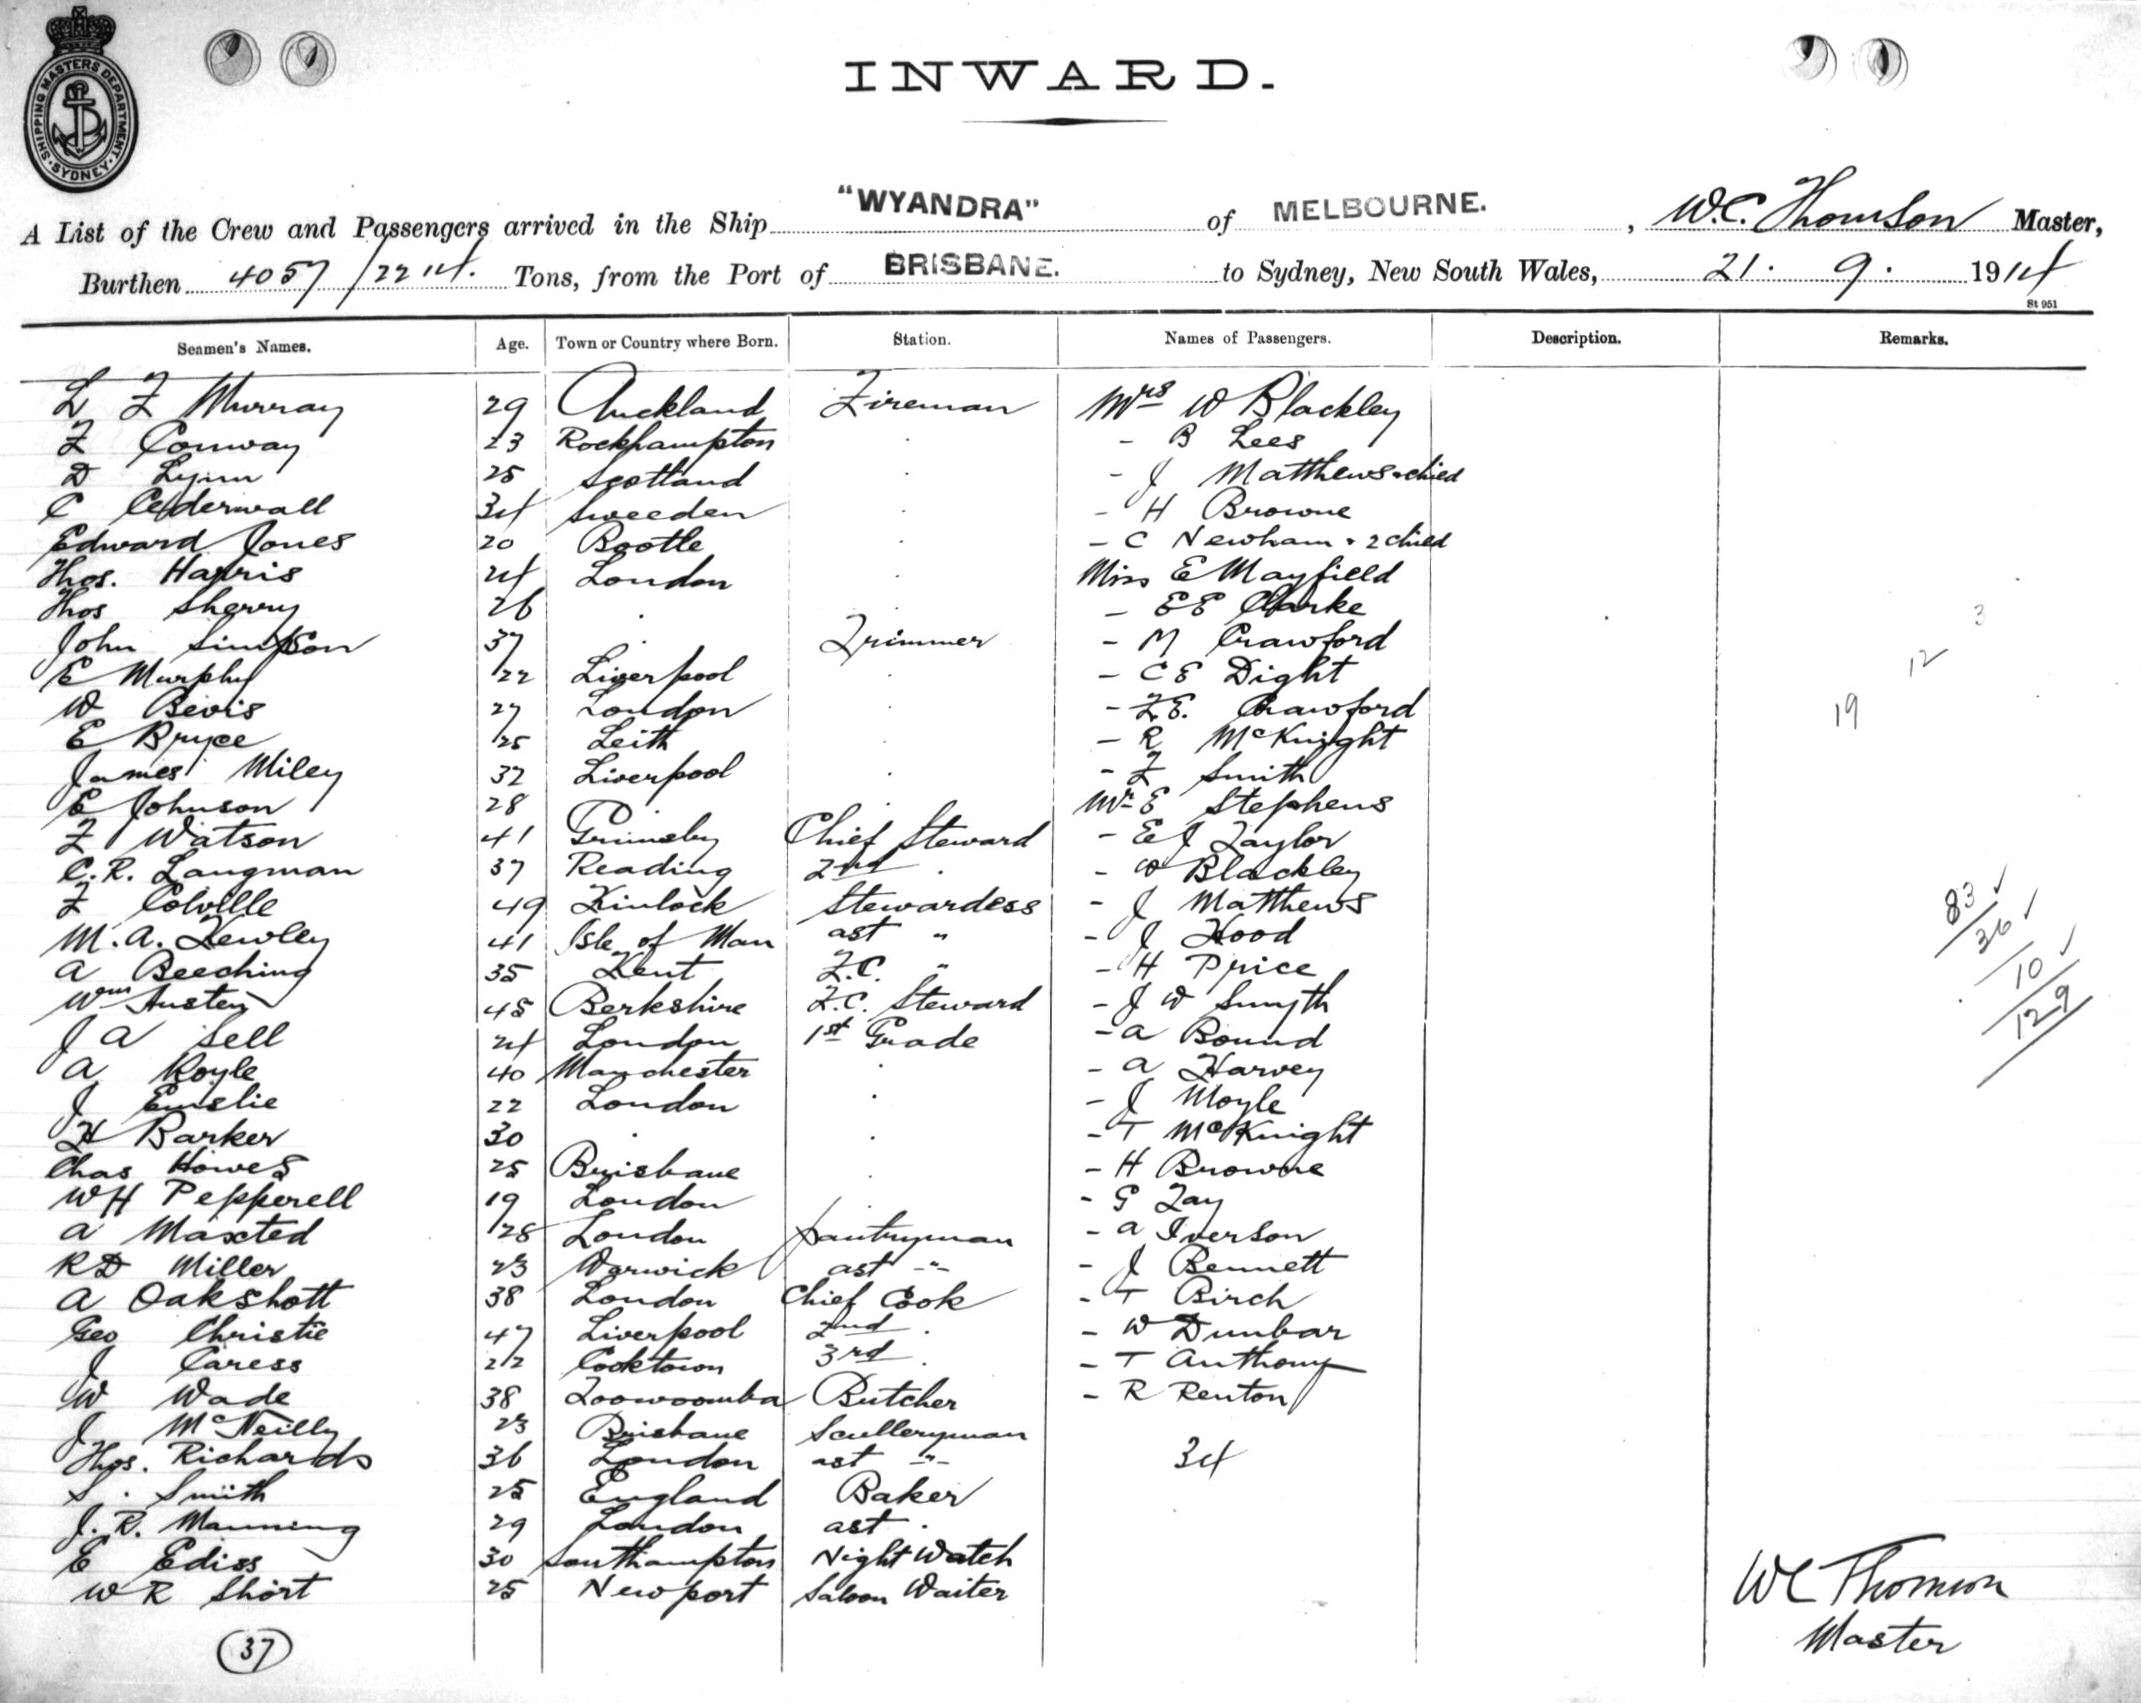 SHIPPING MASTERS DEPARTMENT · SYDNEY ·
INWARD.
A List of the Crew and Passengers arrived in the Ship "WYANDRA" of MELBOURNE. , W.C. Thomson Master,
Burthen 4057/2214. Tons, from the Port of BRISBANE. to Sydney, New South Wales, 21. 9. 1914
St 951
Seamen's Names. Age. Town or Country where Born. Station. Names of Passengers. Description. Remarks.
L F Murray 29 Auckland Fireman Mrs W Blackley
F Conway 23 Rockhampton . - B Lees
D Lynn 25 Scotland . - J Matthews & child
C Cederwall 34 Sweeden . - H Browne
Edward Jones 20 Bootle . - C Newham & 2 child
Thos. Harris 24 London . Miss E Mayfield
Thos Sherry 26 . . - EE Clarke
3
John Simpson 37 . Trimmer - M Crawford
E Murphy 22 Liverpool . - C E Dight
12
W Bevis 27 London . - F.E. Crawford
19
E Bryce 25 Leith . - R McKnight
James Miley 32 Liverpool . - F Smith
E Johnson 28 . Mr E Stephens
F Watson 41 Grimsby Chief Steward - E J Taylor
C.R. Langman 37 Reading 2nd . - W Blackley
F Colville 49 Kinlock Stewardess - J Matthews
83
M.A. Kewley 41 Isle of Man ast " - J Hood
36
A Beeching 35 Kent F.C. " - H Price
10
Wm Austen 48 Berkshire F.C. Steward - J W Smyth
129
J A Sell 24 London 1st Grade - A Bound
A Royle 40 Manchester . - A Harvey
J Emslie 22 London . - J Moyle
H Barker 30 . . - T McKnight
Chas Howes 25 Brisbane . - H Browne
WH Pepperell 19 London . - G Tay
A Maxted 28 London pantryman - A Iverson
RD Miller 23 Warwick ast -"- - J Bennett
A Oakshott 38 London Chief Cook - T Birch
Geo Christie 47 Liverpool 2nd . - W Dunbar
J Caress 22 Cooktown 3rd . - T Anthony
W Wade 38 Toowoomba Butcher - R Renton
J McNeilly 23 Brisbane Sculleryman
Thos. Richards 36 London ast -"- 34
S. Smith 25 England Baker
J. R. Manning 29 London ast .
E Ediss 30 Southampton Night Watch
W R Short 25 Newport Saloon Waiter
WC Thomson
Master
37